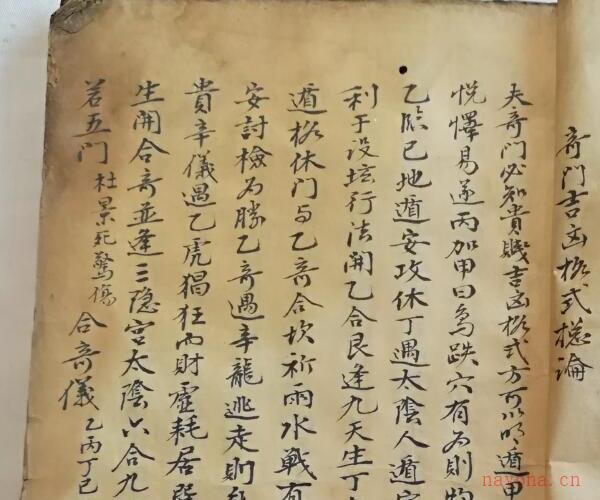 奇門吉凶格式總論
夫奇門必知貴賤吉凶格式方可以明遁甲
悦懌易遂丙加甲曰鳥跌穴有為則物
乙臨己地遁安攻休丁遇太陰人遁安
利于設坛行法開乙合艮逢九天生丁
遁格休门与乙奇合坎祈雨水戰有
安討檢为勝乙奇遇辛龍逃走則
貴辛儀遇乙虎猖狂而財虛耗居
生開合奇並逢三隐宫太陰六合九
若五门杜景死驚傷合奇儀乙丙丁己
nayona.cn